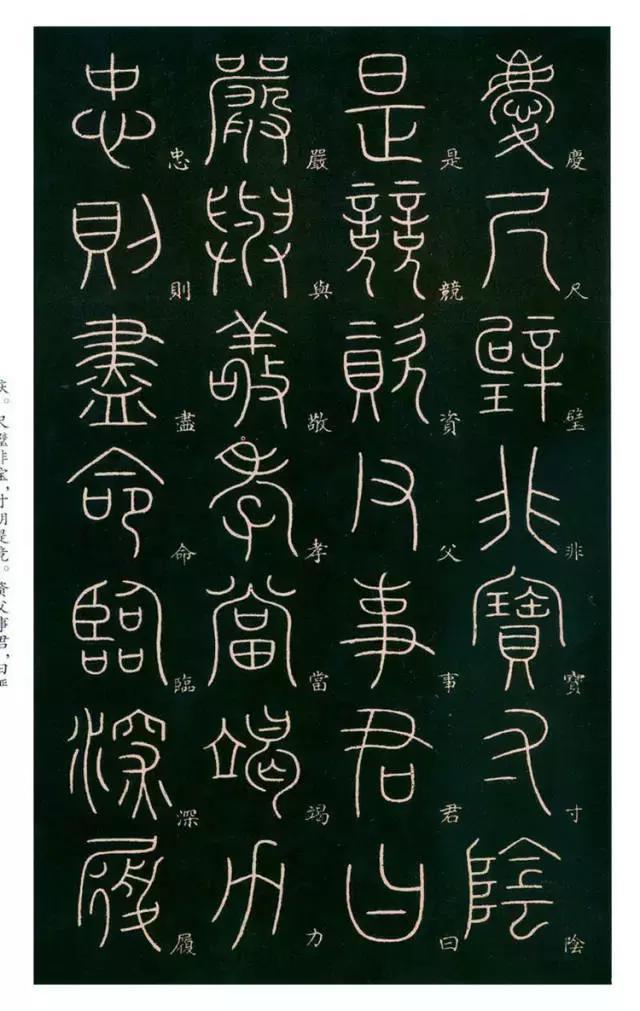 慶尺璧非寶寸陰
是競資父事君曰
嚴與敬孝當竭力
忠則盡命臨深履
尺璧非宝，寸阴是竞。资父事君，曰严